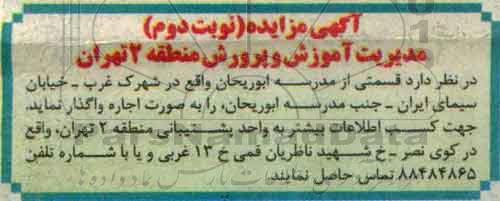 آگهی مزایده (نوبت دوم)
مدیریت آموزش و پرورش منطقه ۲ تهران
در نظر دارد قسمتی از مدرسه ابوریحان واقع در شهرک غرب ـ خیابان
سیمای ایران ـ جنب مدرسه ابوریحان، را به صورت اجاره واگذار نماید.
جهت کسب اطلاعات بیشتر به واحد پشتیبانی منطقه ۲ تهران، واقع
در کوی نصر ـ خ شهید ناظریان قمی خ ۱۳ غربی و یا با شماره تلفن
۸۸۴۸۴۸۶۵ تماس حاصل نمایند.